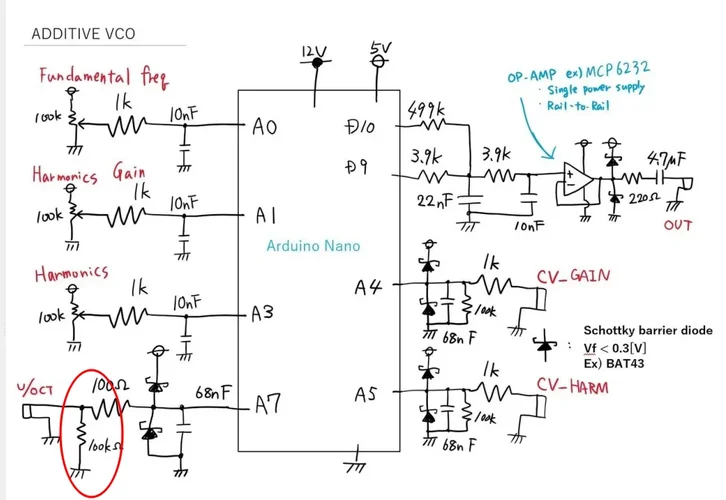 ADDITIVE VCO
12V
5V
Fundamental freq
1k
10nF
100k
A0
Harmonics Gain
1k
10nF
100k
A1
Harmonics
1k
10nF
100k
A3
V/OCT
100Ω
100kΩ
68nF
A7
Arduino Nano
D10
499k
D9
3.9k
3.9k
22nF
10nF
OP-AMP ex) MCP6232
・Single power supply
・Rail-to-Rail
+
-
4.7μF
220Ω
OUT
A4
1k
100k
68nF
CV_GAIN
A5
1k
100k
68nF
CV-HARM
: Schottky barrier diode
Vf < 0.3[V]
Ex) BAT43